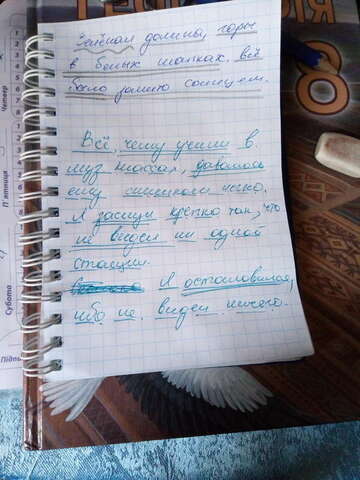 Зелёная долина, горы
в белых шапках. всё
было залито солнцем.
Всё, чему учили в
муз классах, давалось
ему слишком легко.
Я заснул крепко так, что
не видел ни одной
станции.
Я остановился,
ибо не видел ничего.
Четвер
П'ятниця
Субота